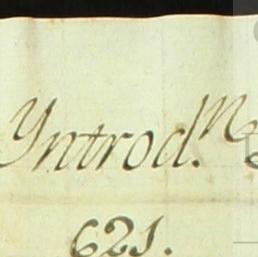 Yntrod.n
621.